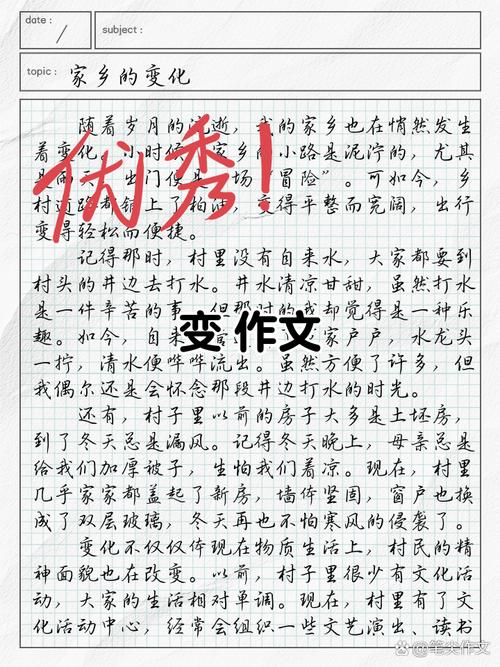 date:
subject:
topic: 家乡的变化
随着岁月的流逝，我的家乡也在悄然发生
着变化。小时候，家乡的小路是泥泞的，尤其
是雨天，出门便是一场“冒险”。可如今，乡
村道路都铺上了柏油，变得平整而宽阔，出行
变得轻松而便捷。
优秀！
记得那时，村里没有自来水，大家都要到
村头的井边去打水。井水清凉甘甜，虽然打水
是一件辛苦的事，但那时的我却觉得是一种乐
趣。如今，自来水 家户户，水龙头
一拧，清水便哗哗流出。虽然方便了许多，但
我偶尔还是会怀念那段井边打水的时光。
变 作文
还有，村子里以前的房子大多是土坯房，
到了冬天总是漏风。记得冬天晚上，母亲总是
给我们加厚被子，生怕我们着凉。现在，村里
几乎家家都盖起了新房，墙体坚固，窗户也换
成了双层玻璃，冬天再也不怕寒风的侵袭了。
变化不仅仅体现在物质生活上，村民的精
神面貌也在改变。以前，村子里很少有文化活
动，大家的生活相对单调。现在，村里有了文
化活动中心，经常会组织一些文艺演出、读书
@笔尖作文